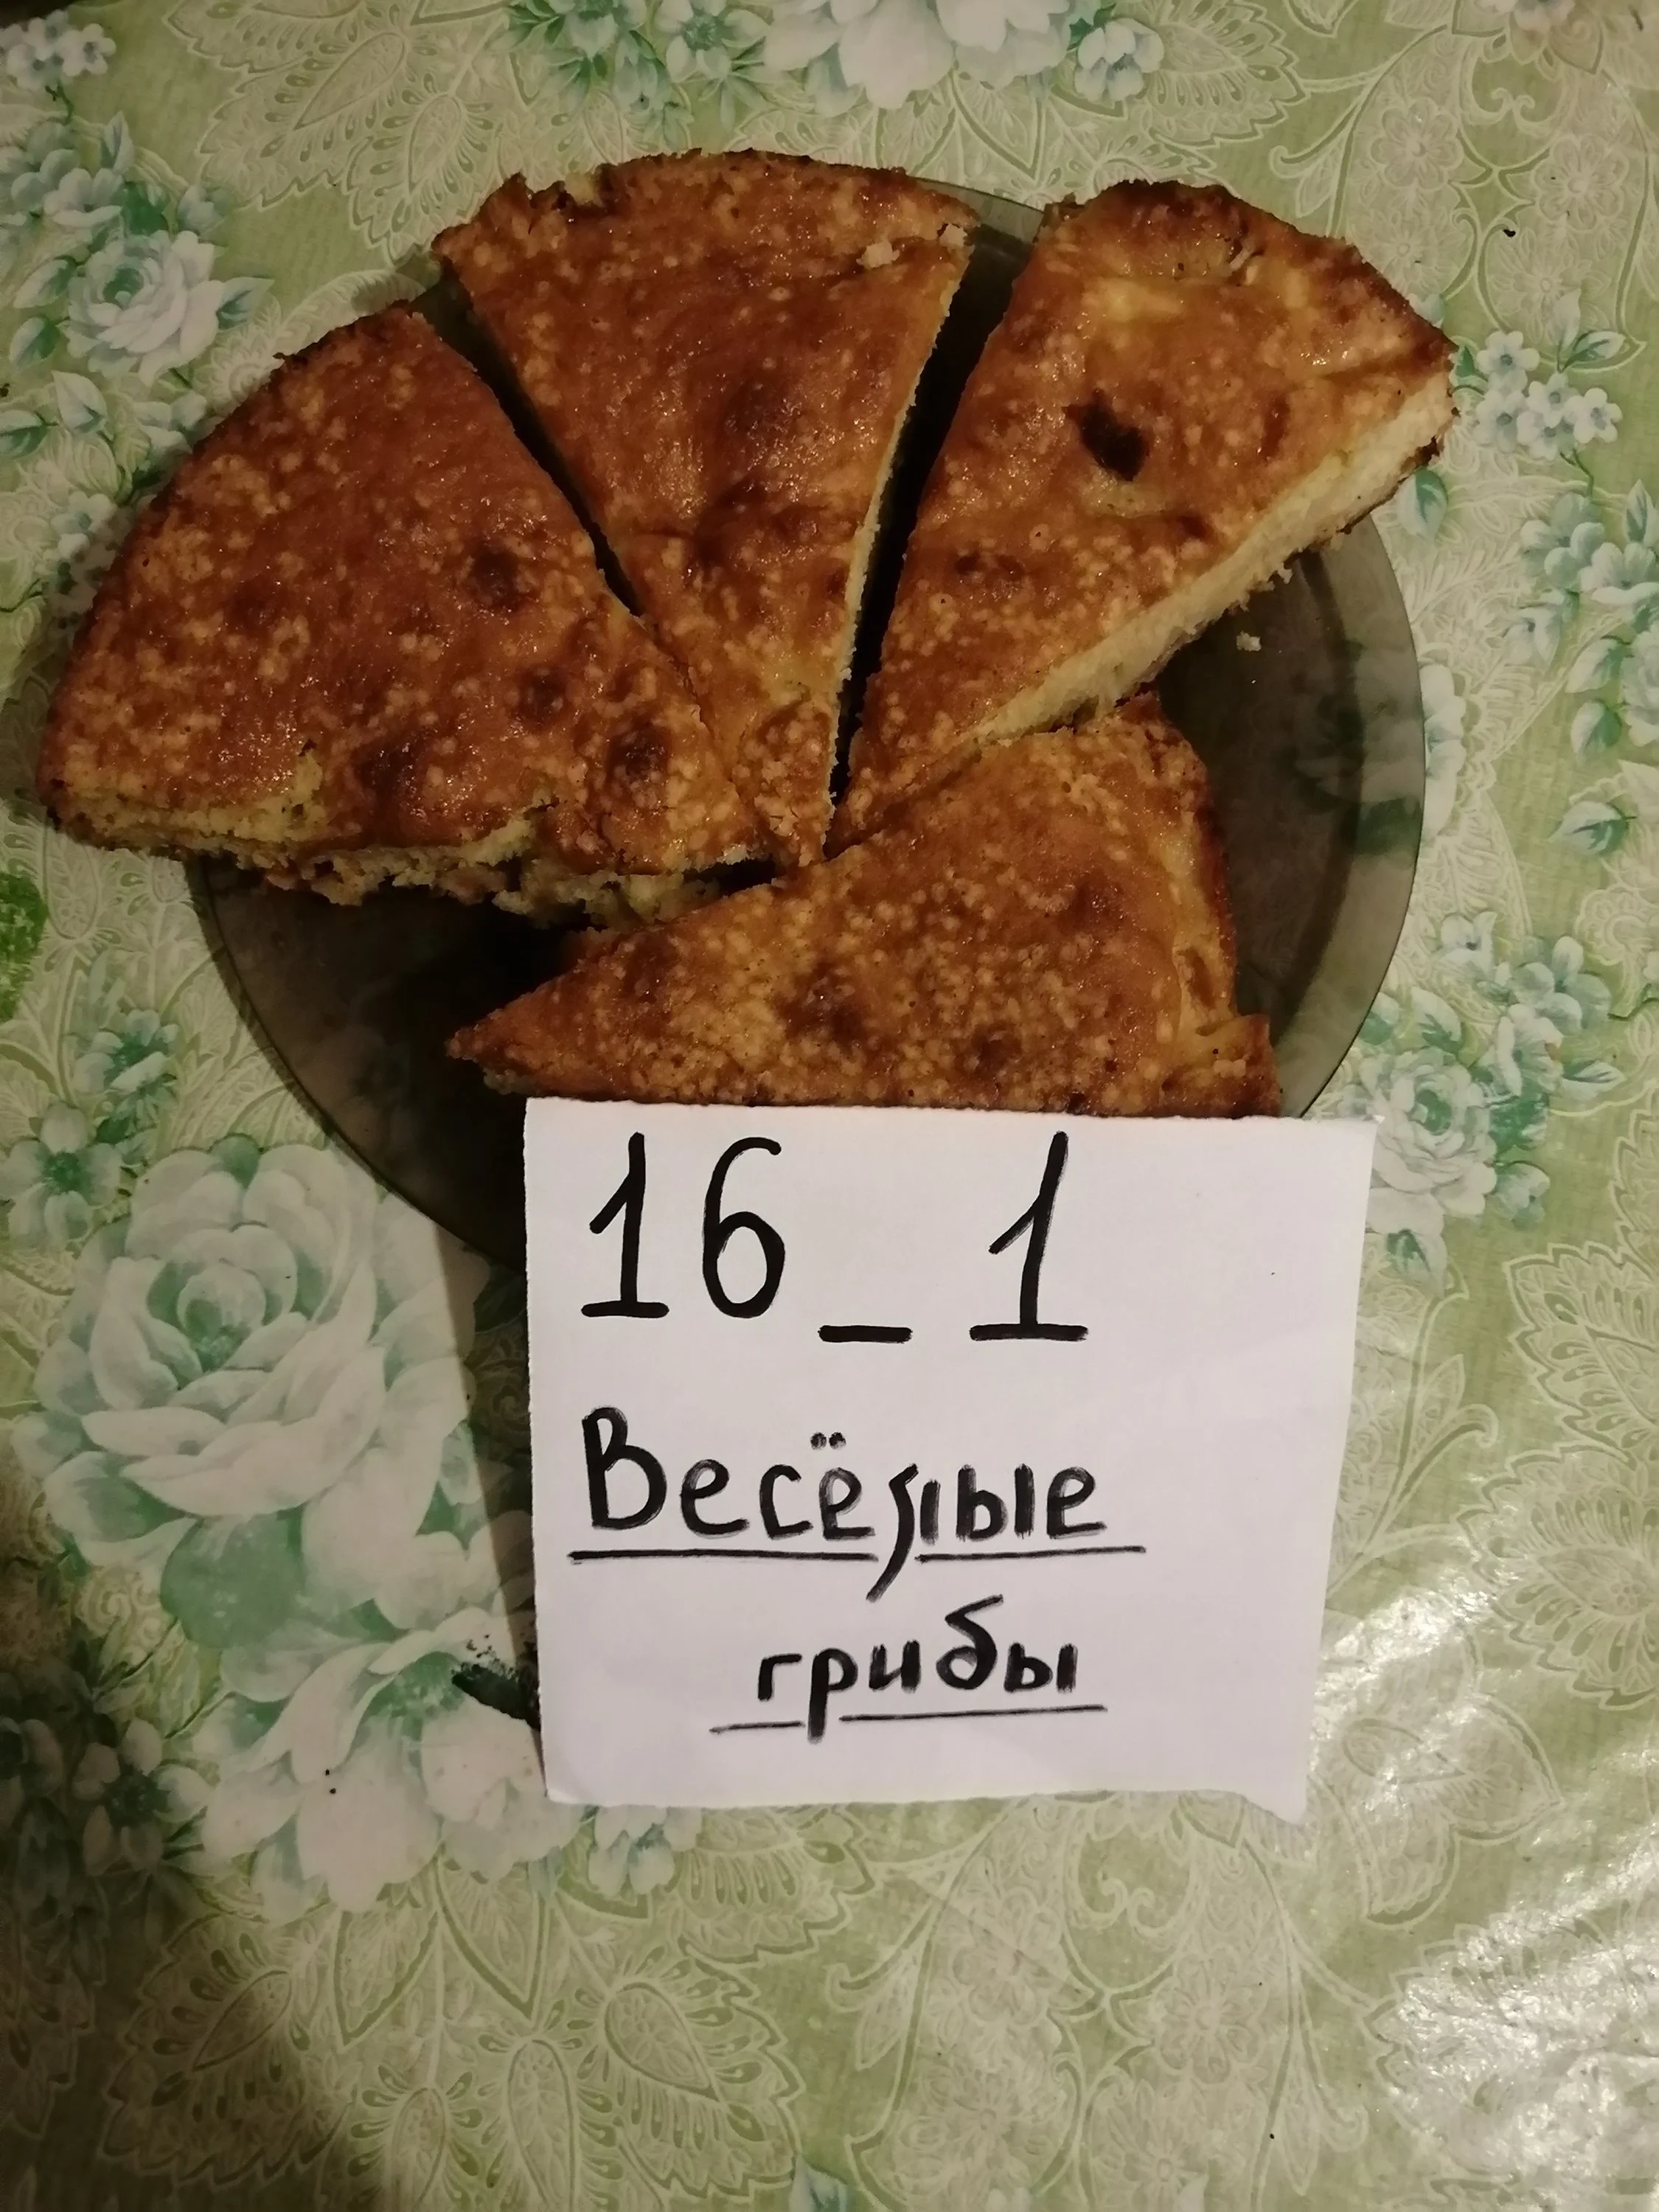 16_1
Весёлые
грибы